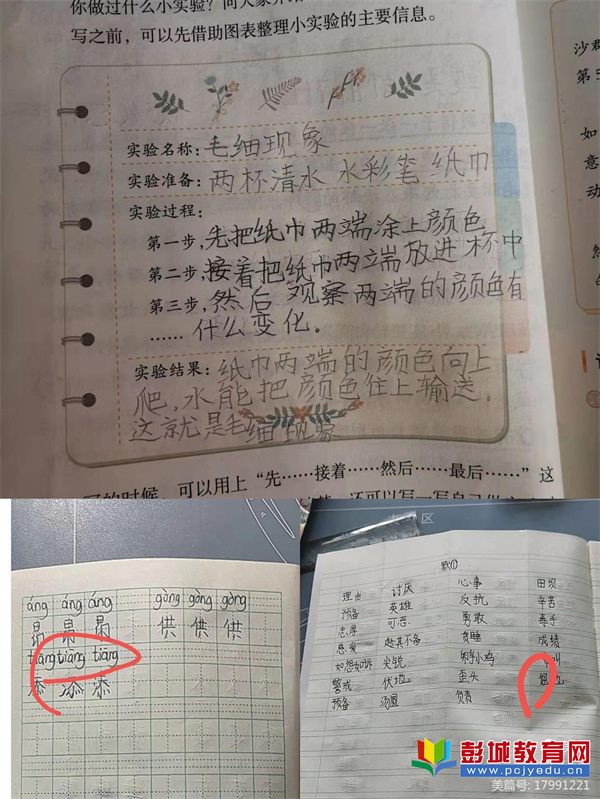 你做过什么小实验？向大家介
写之前，可以先借助图表整理小实验的主要信息。
实验名称：毛细现象
实验准备：两杯清水 水彩笔 纸巾
实验过程：
第一步，先把纸巾两端涂上颜色
第二步，接着把纸巾两端放进杯中
第三步，然后 观察两端的颜色有
……什么变化。
实验结果：纸巾两端的颜色向上
爬，水能把颜色住上输送，
这就是毛细现象
写的时候，可以用上“先……接着……然后……最后……”这
沙群
第5
如
意
动
áng áng áng gòng gòng gòng
昂 昂 昂 供 供 供
tiāng tiāng tiāng
添 添 添
默①
理由 讨厌 心事 田坝
预备 英雄 反抗 辛苦
忠厚 可恶 勇敢 毒手
慈爱 趁其不备 贪睡 成绩
如怨如诉 尖锐 孵小鸡
警戒 伏地 歪头
预备 汤圆 负责
区
彭城教育网
www.pcjyedu.cn
美篇号: 17991221